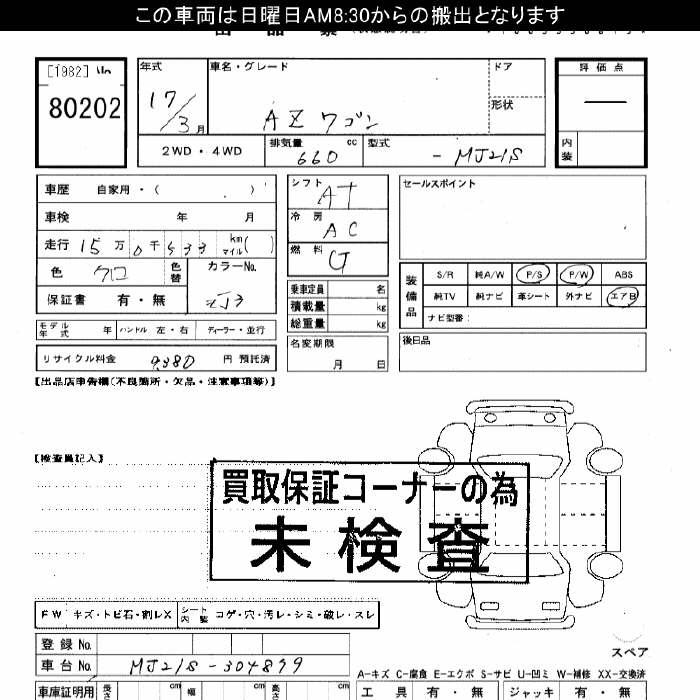 この車両は日曜日AM8:30からの搬出となります
[1982]
80202
年式
車名・グレード
ドア
評価点
17/3月
AZワゴン
形状
—
2WD・4WD
排気量
660
cc
型式
- MJ21S
内装
車歴 自家用・( )
シフト AT
セールスポイント
車検 年 月
冷房 AC
走行 15万0千533 km マイル( )
燃料 G
色 クロ
色替
カラーNo.
ZJ3
保証書 有・無
乗車定員 名
積載量 kg
総重量 kg
装備品
S/R 純A/W P/S P/W ABS
純TV 純ナビ 革シート 外ナビ エアB
ナビ型番:
モデル年式 年 ハンドル 左・右 ディーラー・並行
名変期限
月 日
後日品
リサイクル料金 9,380 円 預託済
【出品店申告欄(不良箇所・欠品・注意事項等)】
【検査員記入】
買取保証コーナーの為
未検査
FW キズ・トビ石・割レX シート内装 コゲ・穴・汚レ・シミ・破レ・スレ
登録 No.
スペア
車台 No. MJ21S-304899
A-キズ C-腐食 E-エクボ S-サビ U-凹ミ W-補修 XX-交換済
車庫証明用 長さ cm 幅 cm 高さ cm
工具 有・無 ジャッキ 有・無